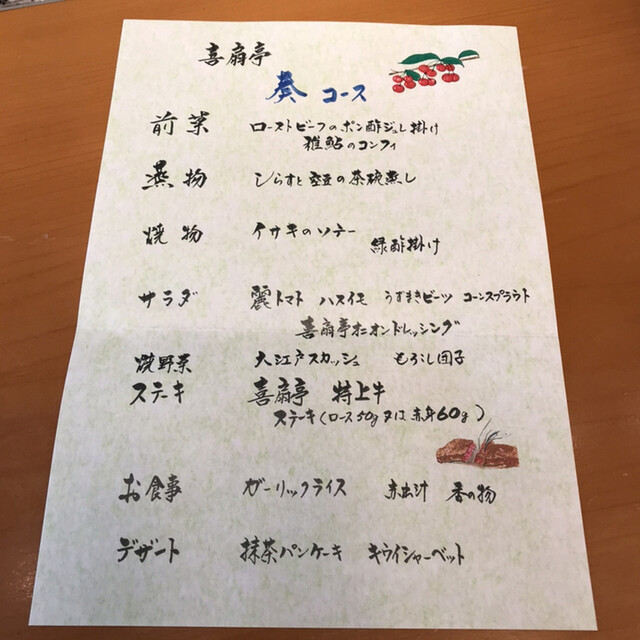 喜扇亭
奏 コース
前菜 ローストビーフのポン酢ジュレ掛け
稚鮎のコンフィ
蒸物 しらすと空豆の茶碗蒸し
焼物 イサキのソテー
緑酢掛け
サラダ 麗トマト ハスイモ うずまきビーツ コーンスプラウト
喜扇亭オニオンドレッシング
焼野菜 大江戸スカッシュ もろこし団子
ステーキ 喜扇亭 特上牛
ステーキ(ロース50g又は赤身60g)
お食事 ガーリックライス 赤出汁 香の物
デザート 抹茶パンケーキ キウイシャーベット